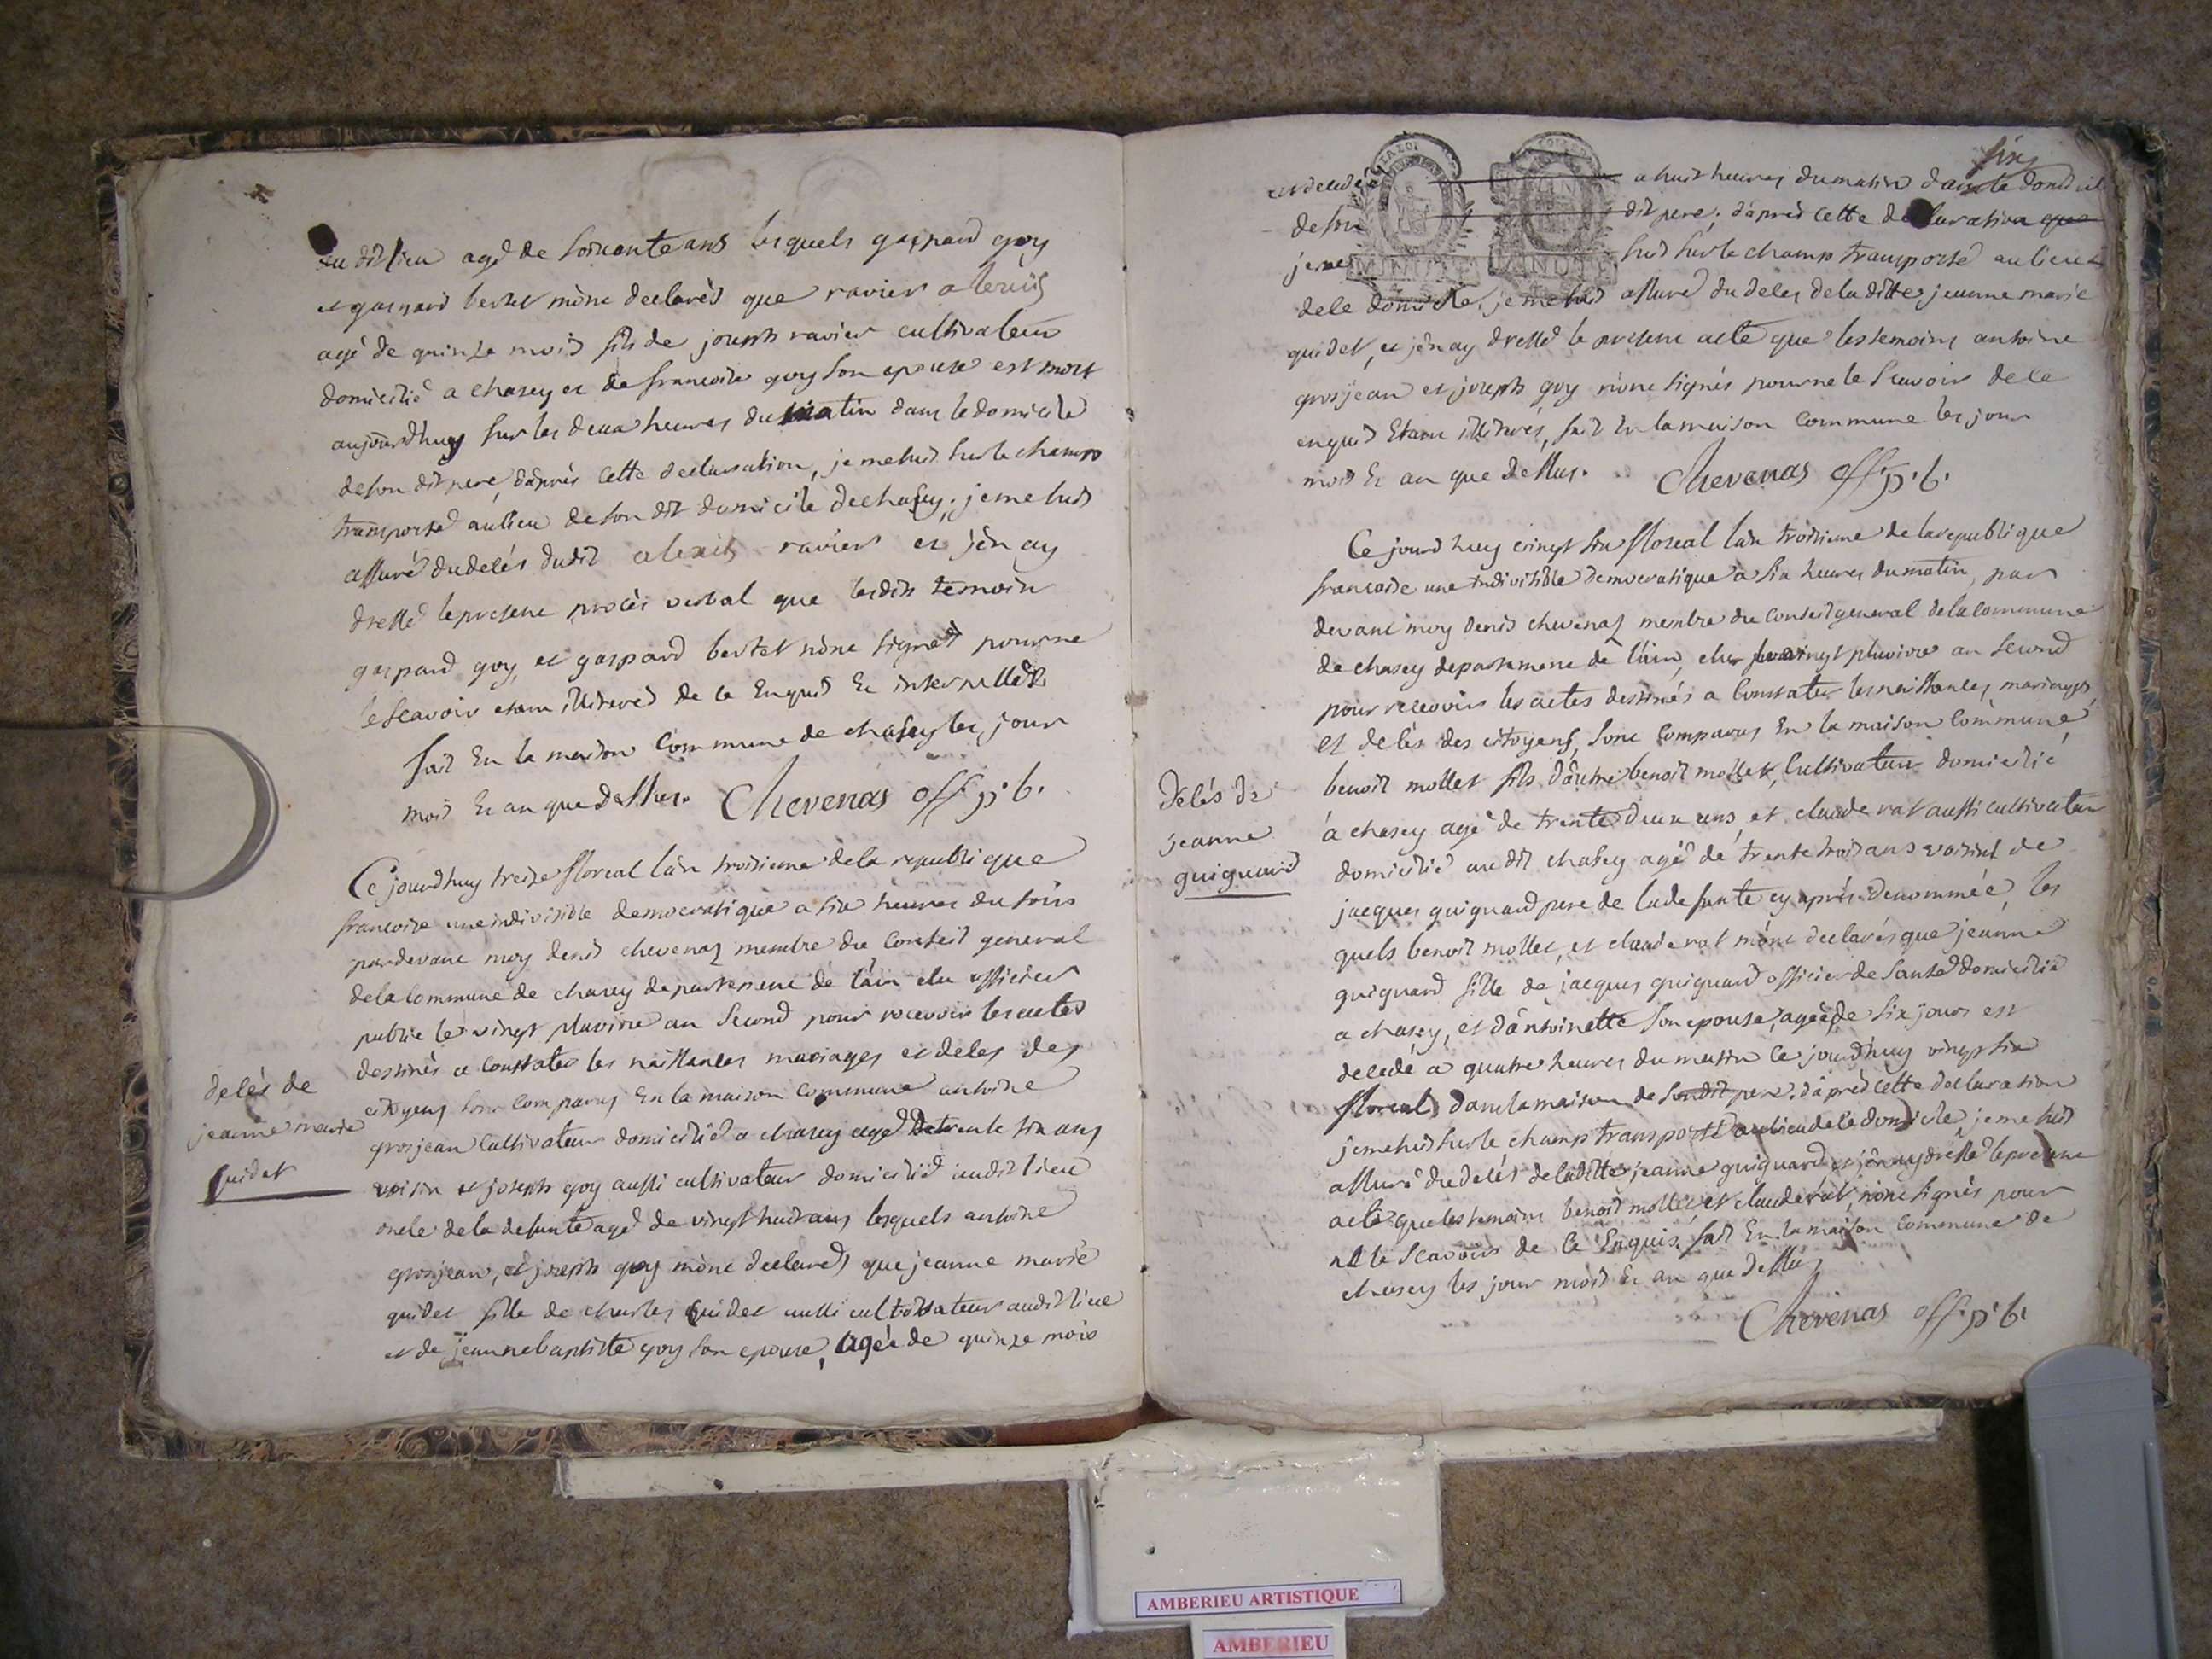 au dit lieu agé de soixante ans lesquels gaspard goy
et gaspard bertet mònt declarés que ravier alexis
agé de quinze mois fils de joseph ravier cultivateur
domicilié a chasey et de francoise goy son epouse est mort
aujourdhuy sur les deux heures du matin dans le domicile
de son dit pere, dàprès cette declaration, je me suis sur le champ
transporté au lieu de son dit domicile de chasey, je me suis
assuré du delés dudit alexis ravier et jèn ay
dressé le present procès verbal que lesdits temoin
gaspard goy, et gaspard bertet nònt signés pour ne
le scavoir etant illiterés de ce Enquis Et interpellés
fait En la maison Commune de chasey les jour
mois Et an que dessus. Chevenas off. p. b.
Ce jourdhuy treize floreal làn troisieme de la republique
francoise une indivisible democratique a six heures du soir
pardevant moy denis chevenaz membre du Conseil general
de la Commune de chasey departement de làin elu officier
public le vingt pluviose an second pour recevoir les actes
destinés a constater les naissances mariages et deles des
citoyens sont comparus En la maison Commune antoine
grosjean Cultivateur domicilié a chasey agé de trente six ans
voisin et joseph goy aussi cultivateur domicilié audit lieu
oncle de la defunte agé de vingt huit ans lesquels antoine
grosjean, et joseph goy mònt declarés que jeanne marie
guidet fille de charles guidet aussi cultivateur audit lieu
et de jeanne baptiste goy son epouse, agée de quinze mois
delés de
jeanne marie
guidet
six
est decedé a huit heures du matin dans le domicil
de son dit pere, dàprès cette declaration que
je me suis sur le champ transporté au lieu
de le domicile, je me suis assuré du deles de la ditte jeanne marie
guidet, et jèn ay dressé le present acte que les temoins antoine
grosjean et joseph goy nònt signés pour ne le scavoir de ce
enquis Etant illiterés, fait En la maison Commune les jour
mois Et an que dessus. Chevenas off. p. b.
Ce jourd huy vingt six floreal làn troisieme de la republique
francoise une indivisible democratique a six heures du matin, par
devant moy denis chevenaz membre du Conseil general de la Commune
de chasey departement de làin, elu le vingt pluviose an second
pour recevoir les actes destinés a Constater les naissances, mariages
et delés des citoyens, sont Comparus En la maison Commune,
benoit mollet fils dàutre benoit mollet, Cultivateur domicilié
à chasey agé de trente deux ans, et claude rat aussi cultivateur
domicilié au dit chasey agé de trente trois ans voisins de
jacques guignard pere de la defunte cy après denommée, les
quels benoit mollet, et claude rat mònt declarés que jeanne
guignard fille de jacques guignard officier de santé domicilié
a chasey, et dàntoinette son epouse, agéé de six jours est
decedé a quatre heures du matin Ce jourdhuy vingt six
floreal dans la maison de son dit pere, dàprès cette declaration
je me suis sur le champ transporté au lieu de le domicile, je me suis
assuré du delés de la ditte jeanne guignard et jèn ay dressé le present
acte que les temoins benoit mollet, et claude rat, nònt signés pour
ne le Scavoir de Ce Enquis fait En la maison Commune de
chasey les jour mois Et an que dessus
Chevenas off. p. b.
delés de
jeanne
guignard
MINUTE
MINUTE
AMBERIEU ARTISTIQUE
AMBERIEU